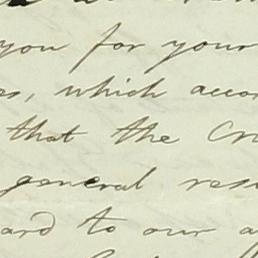 you for your
which accor
that the Cr
general res
ard to our a